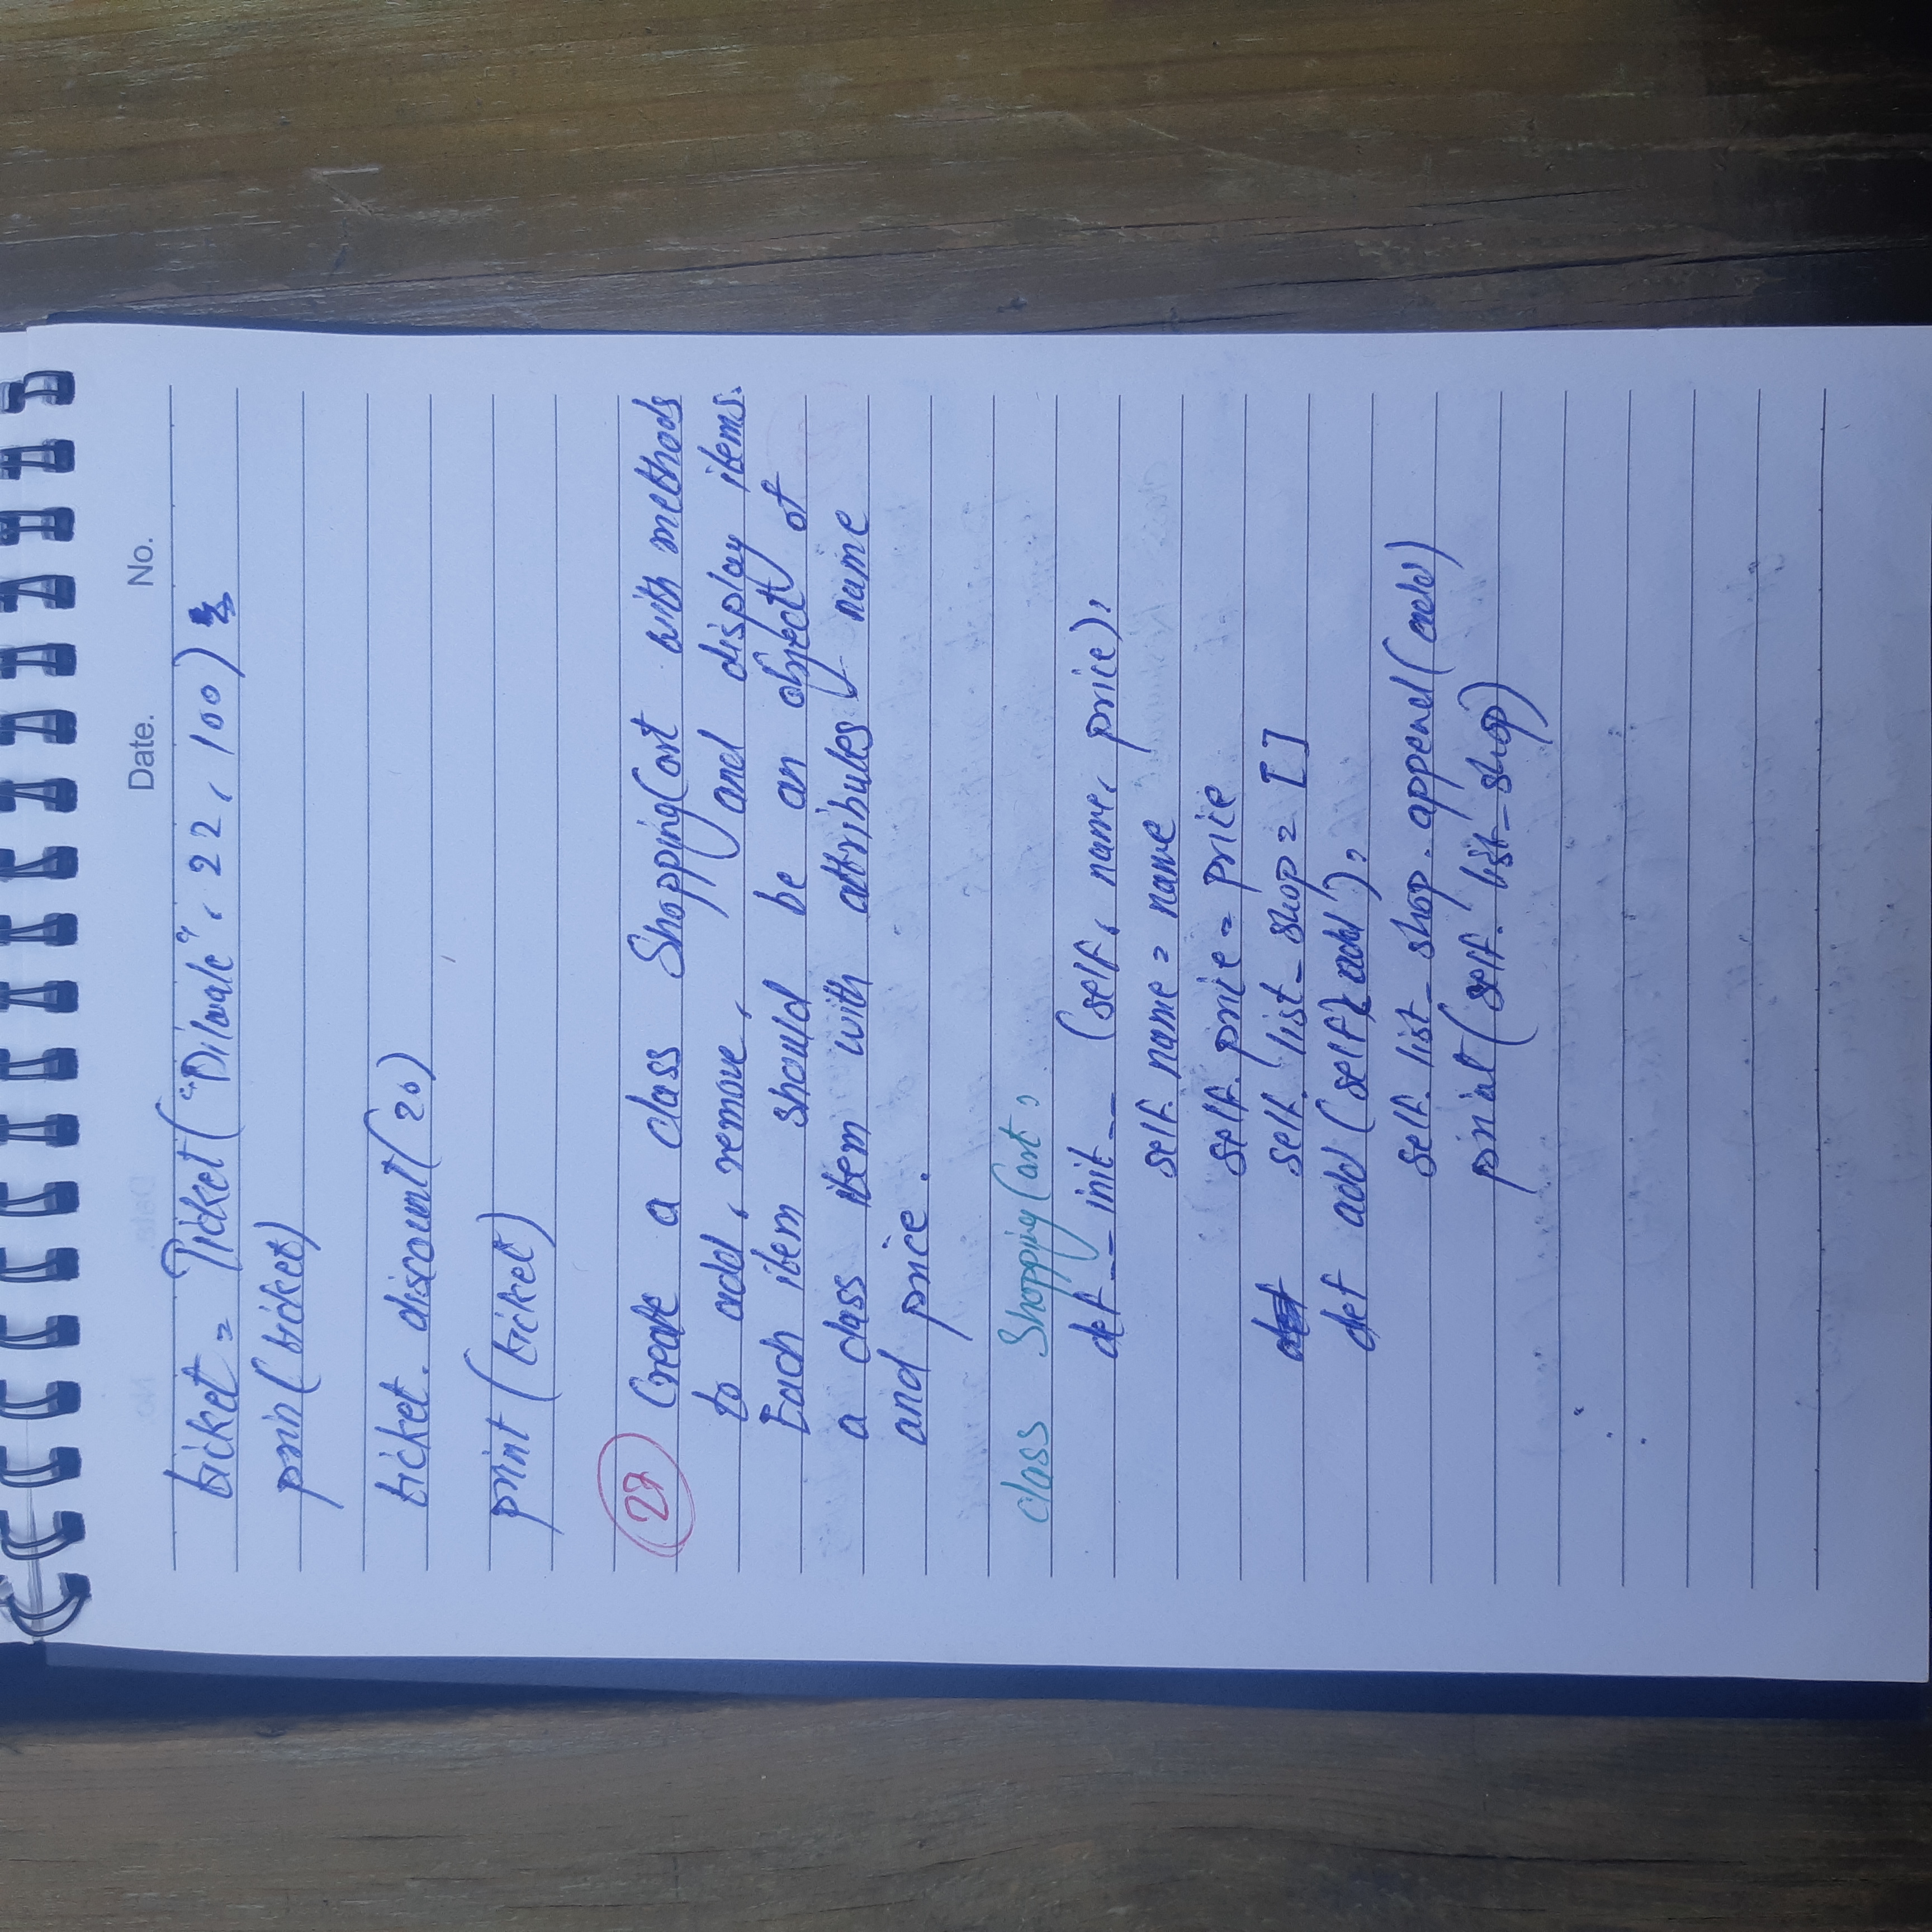 Date. No.
ticket = Ticket("Dilwale", 22, 100)
prin(ticket)
ticket. discount(20)
print(ticket)
Create a class ShoppingCart with methods
to add, remove, and display items.
Each item should be an object of
a class item with attributes name
and price.
class ShoppingCart:
def __init__ (self, name, price):
self. name = name
self. price = price
self. list_shop = []
def add (self, add):
self. list_shop. append(add)
print(self. list_shop)